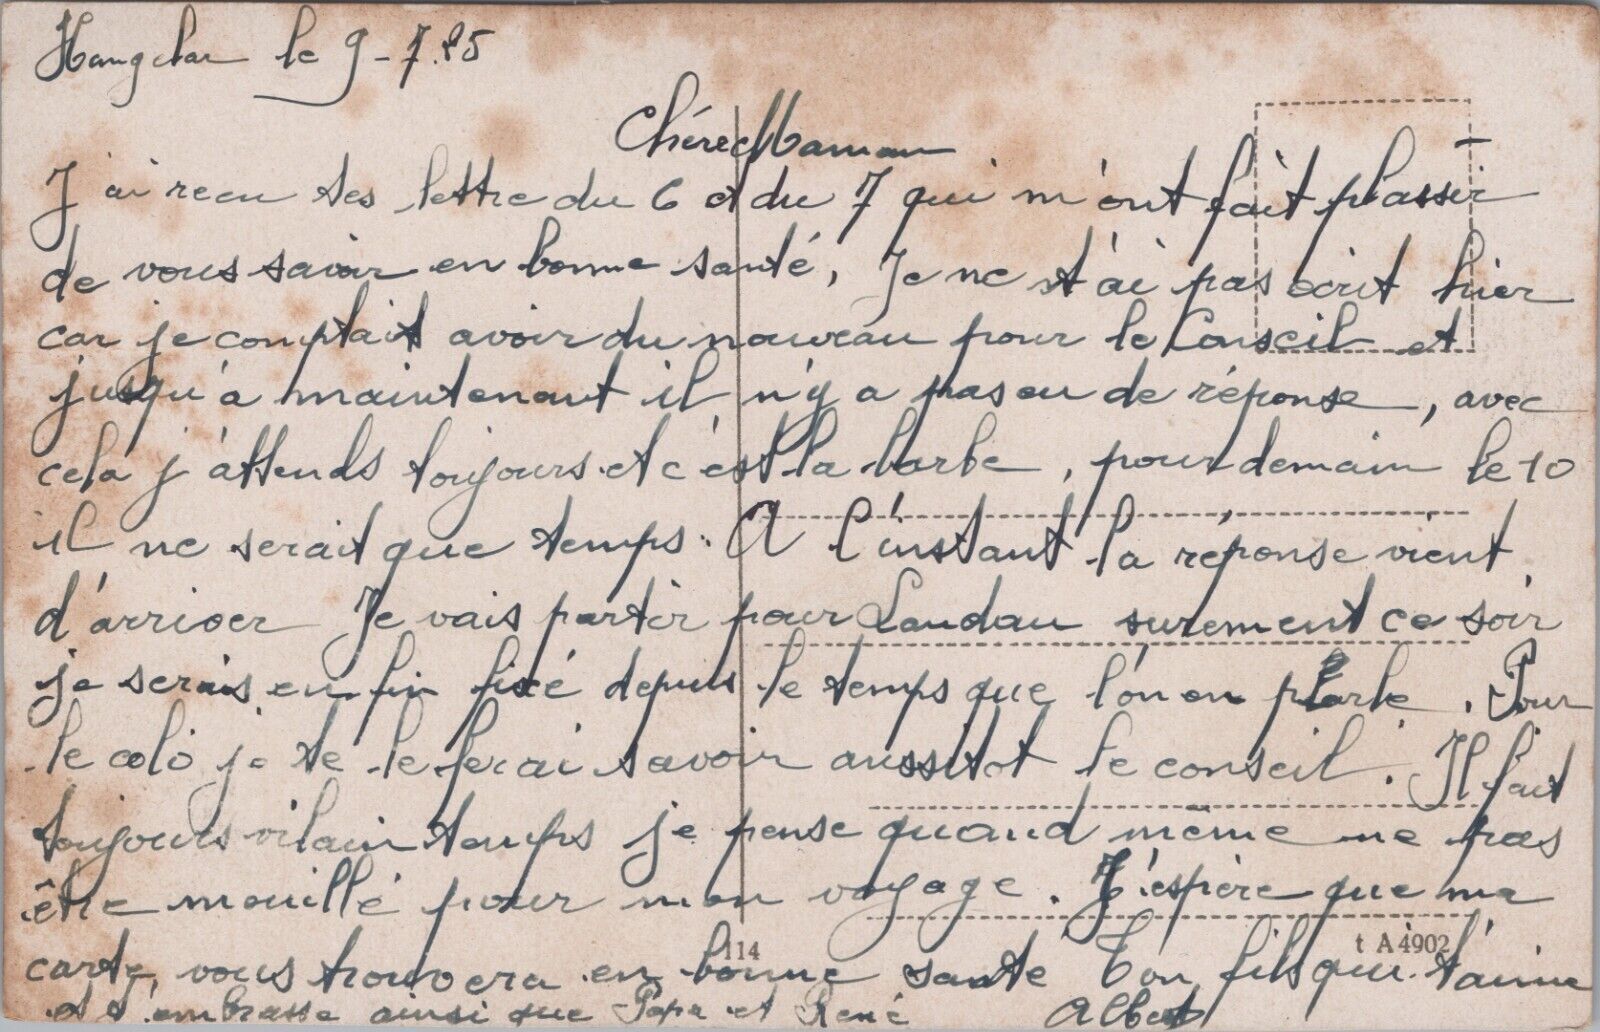 Hangelar le 9-7.25
Chére Maman
J'ai recu tes lettre du 6 et du 7 qui m'ont fait plassir
de vous savoir en bonne santé, Je ne t'ai pas ecrit hier
car je comptait avoir du nouveau pour le Conseil et
jusqu'a maintenant il n'y a pas eu de réponse, avec
cela j'attends toujours et c'est la barbe, pour demain le 10
il ne serait que temps. A l'instant la réponse vient
d'arriver Je vais partir pour Landau surement ce soir
je serais en fin fixé depuis le temps que l'on en parle. Pour
le colo je te le ferai savoir aussitot le conseil. Il fait
toujours vilain temps je pense quand même ne pas
être mouillé pour mon voyage. J'éspère que ma
carte, vous trouvera en bonne santé Ton fils qui t'aime
et t'embrasse ainsi que Papa et René Albert
114
t A 4902